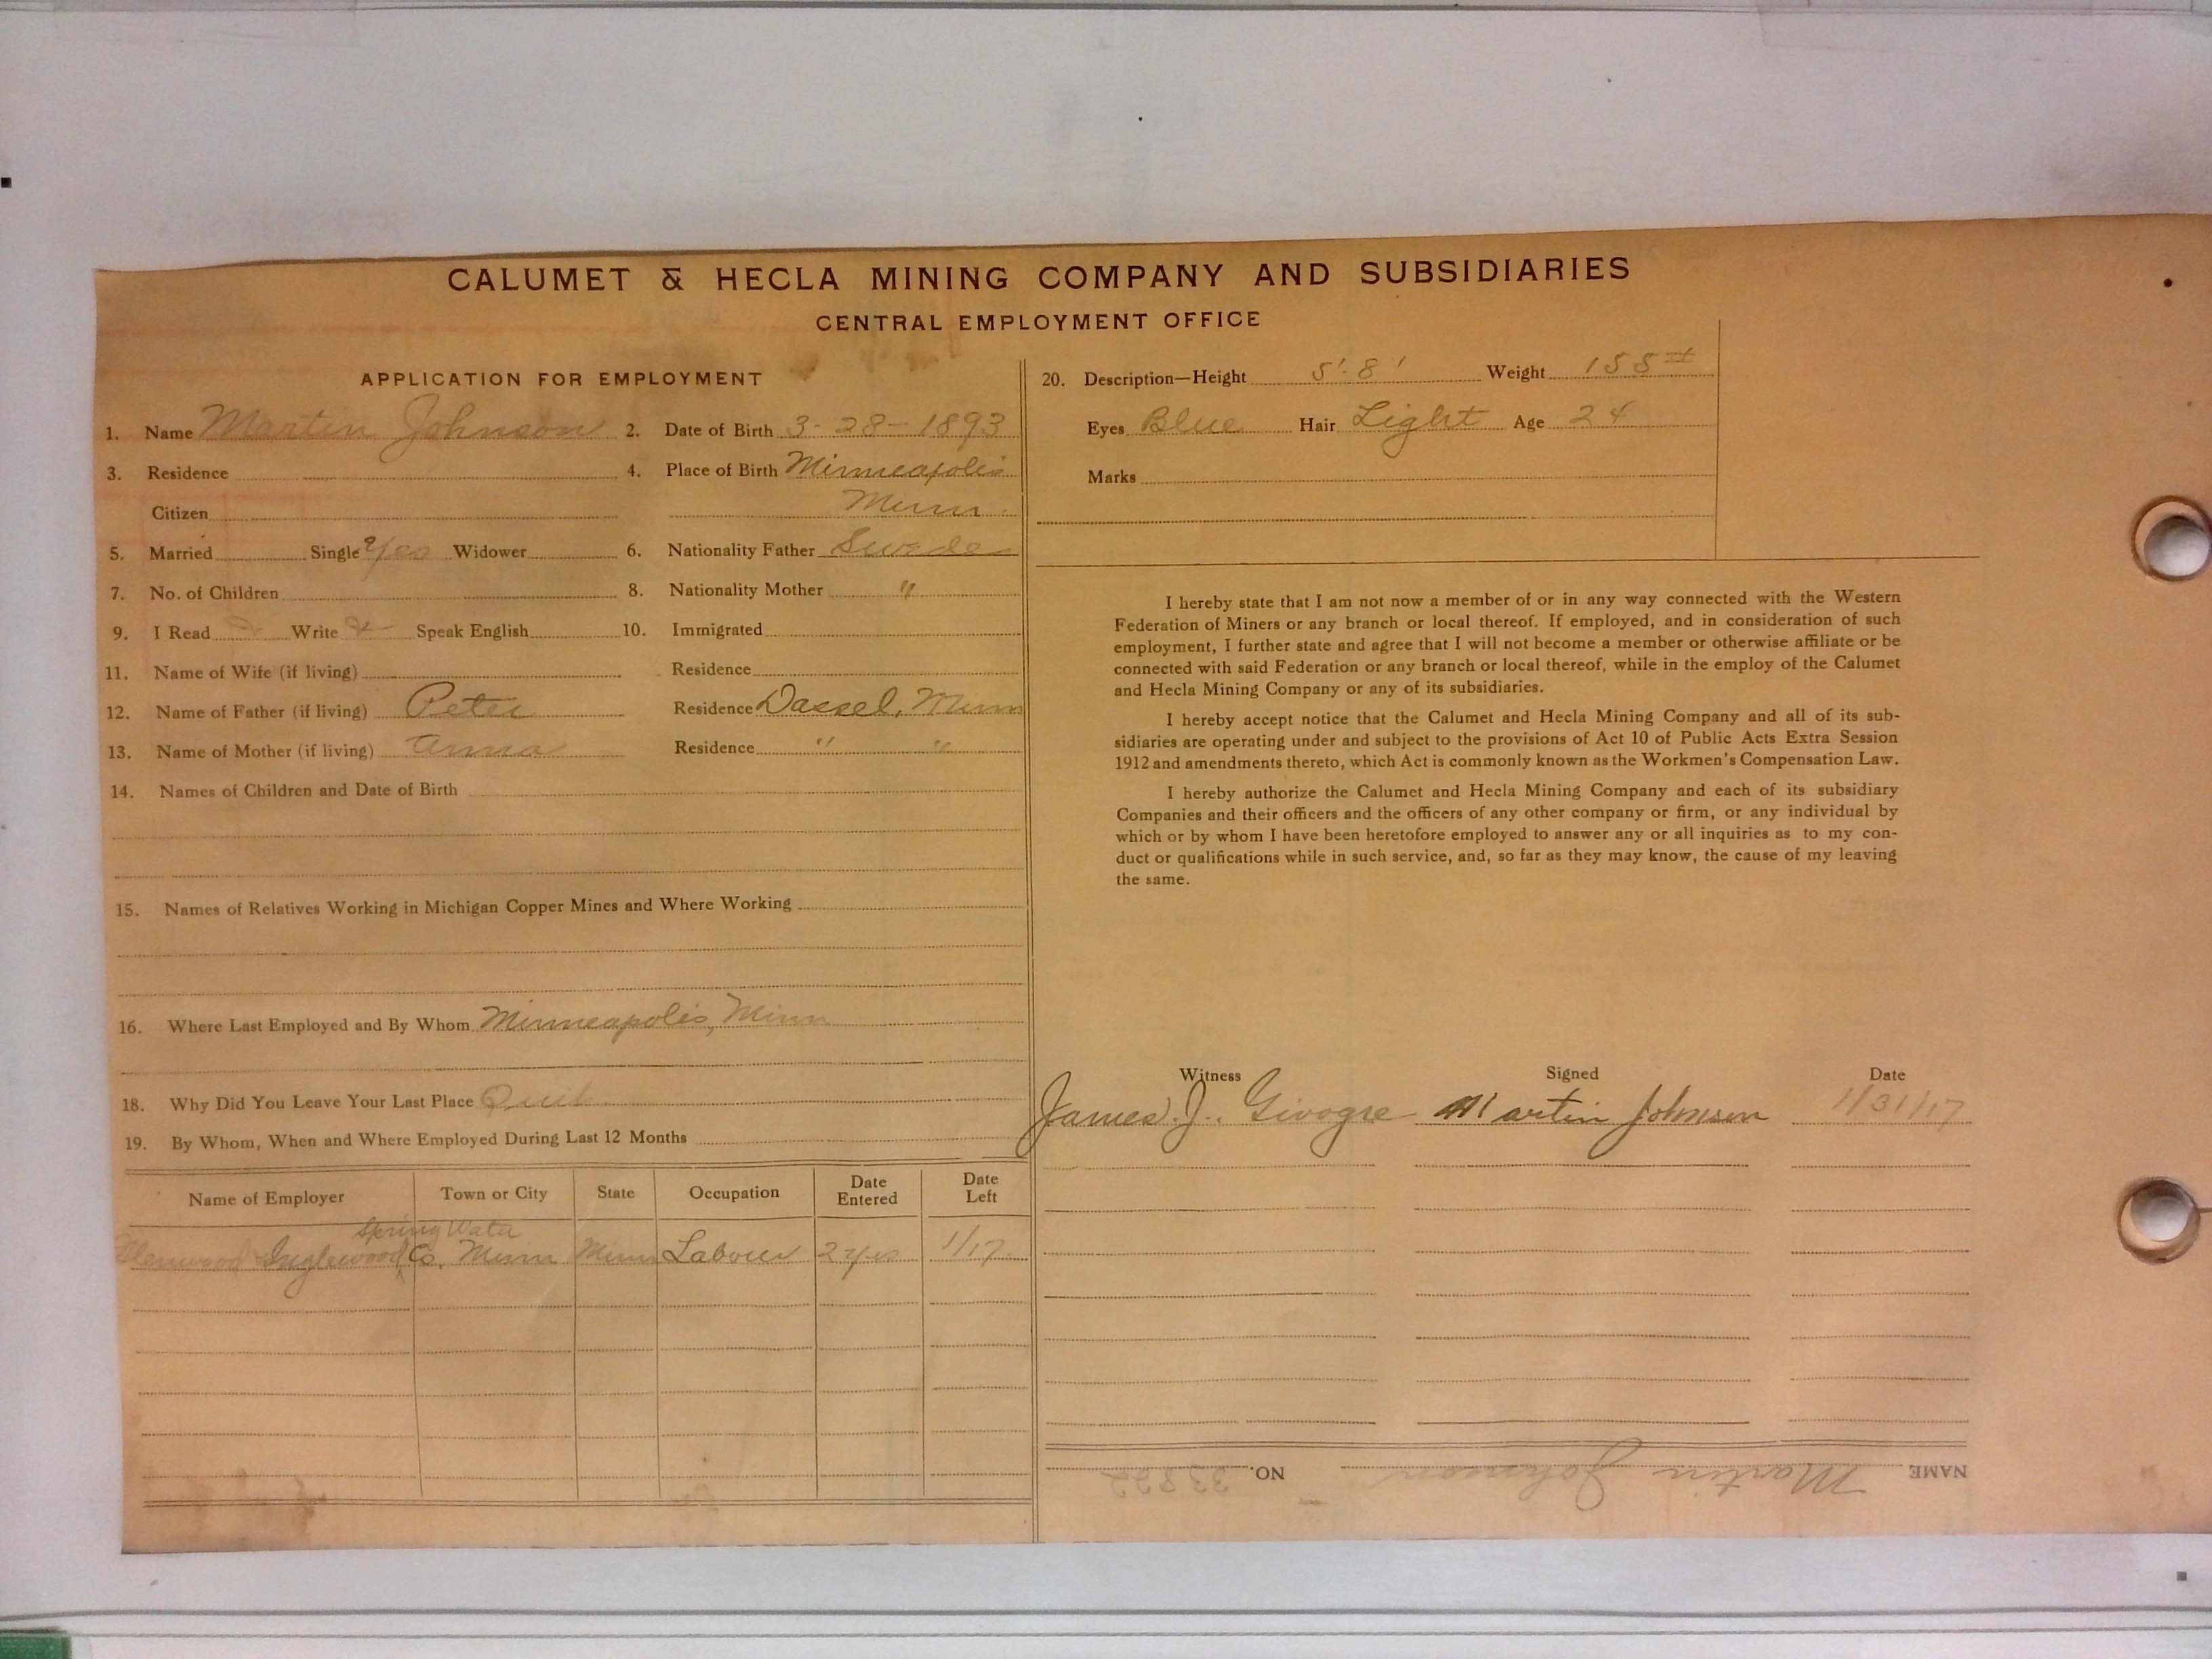 CALUMET & HECLA MINING COMPANY AND SUBSIDIARIES
CENTRAL EMPLOYMENT OFFICE
APPLICATION FOR EMPLOYMENT
1. Name Martin Johnson 2. Date of Birth 3-28-1893
3. Residence 4. Place of Birth Minneapolis
Citizen Minn
5. Married Single Yes Widower 6. Nationality Father Sweden
7. No. of Children 8. Nationality Mother "
9. I Read Write Speak English 10. Immigrated
11. Name of Wife (if living) Residence
12. Name of Father (if living) Peter Residence Dassel, Minn
13. Name of Mother (if living) Anna Residence " "
14. Names of Children and Date of Birth
15. Names of Relatives Working in Michigan Copper Mines and Where Working
16. Where Last Employed and By Whom Minneapolis, Minn
18. Why Did You Leave Your Last Place Quit
19. By Whom, When and Where Employed During Last 12 Months
Name of Employer Town or City State Occupation Date Entered Date Left
Spring Water
Glenwood Inglewood Co. Minn Minn Laborer 2 yrs 1/17
20. Description—Height 5'-8' Weight 155#
Eyes Blue Hair Light Age 24
Marks
I hereby state that I am not now a member of or in any way connected with the Western
Federation of Miners or any branch or local thereof. If employed, and in consideration of such
employment, I further state and agree that I will not become a member or otherwise affiliate or be
connected with said Federation or any branch or local thereof, while in the employ of the Calumet
and Hecla Mining Company or any of its subsidiaries.
I hereby accept notice that the Calumet and Hecla Mining Company and all of its sub-
sidiaries are operating under and subject to the provisions of Act 10 of Public Acts Extra Session
1912 and amendments thereto, which Act is commonly known as the Workmen's Compensation Law.
I hereby authorize the Calumet and Hecla Mining Company and each of its subsidiary
Companies and their officers and the officers of any other company or firm, or any individual by
which or by whom I have been heretofore employed to answer any or all inquiries as to my con-
duct or qualifications while in such service, and, so far as they may know, the cause of my leaving
the same.
Witness Signed Date
James. J. Givogre Martin Johnson 1/31/17
NAME Martin Johnson NO. 33822